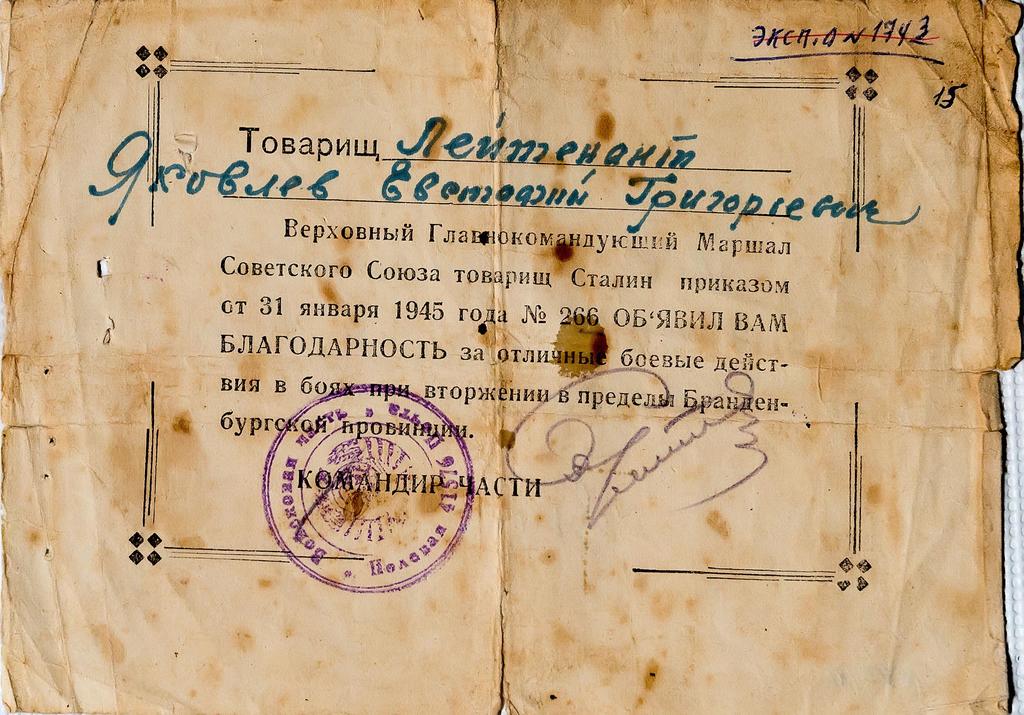 ЭКСП. О N 1743
15
Товарищ Лейтенант
Яковлев Евстафий Григорьевич
Верховный Главнокомандующий Маршал
Советского Союза товарищ Сталин приказом
от 31 января 1945 года № 266 ОБ‘ЯВИЛ ВАМ
БЛАГОДАРНОСТЬ за отличные боевые дейст-
вия в боях при вторжении в пределы Бранден-
бургской провинции.
КОМАНДИР ЧАСТИ
Войсковая часть * Полевая почта 41576 *